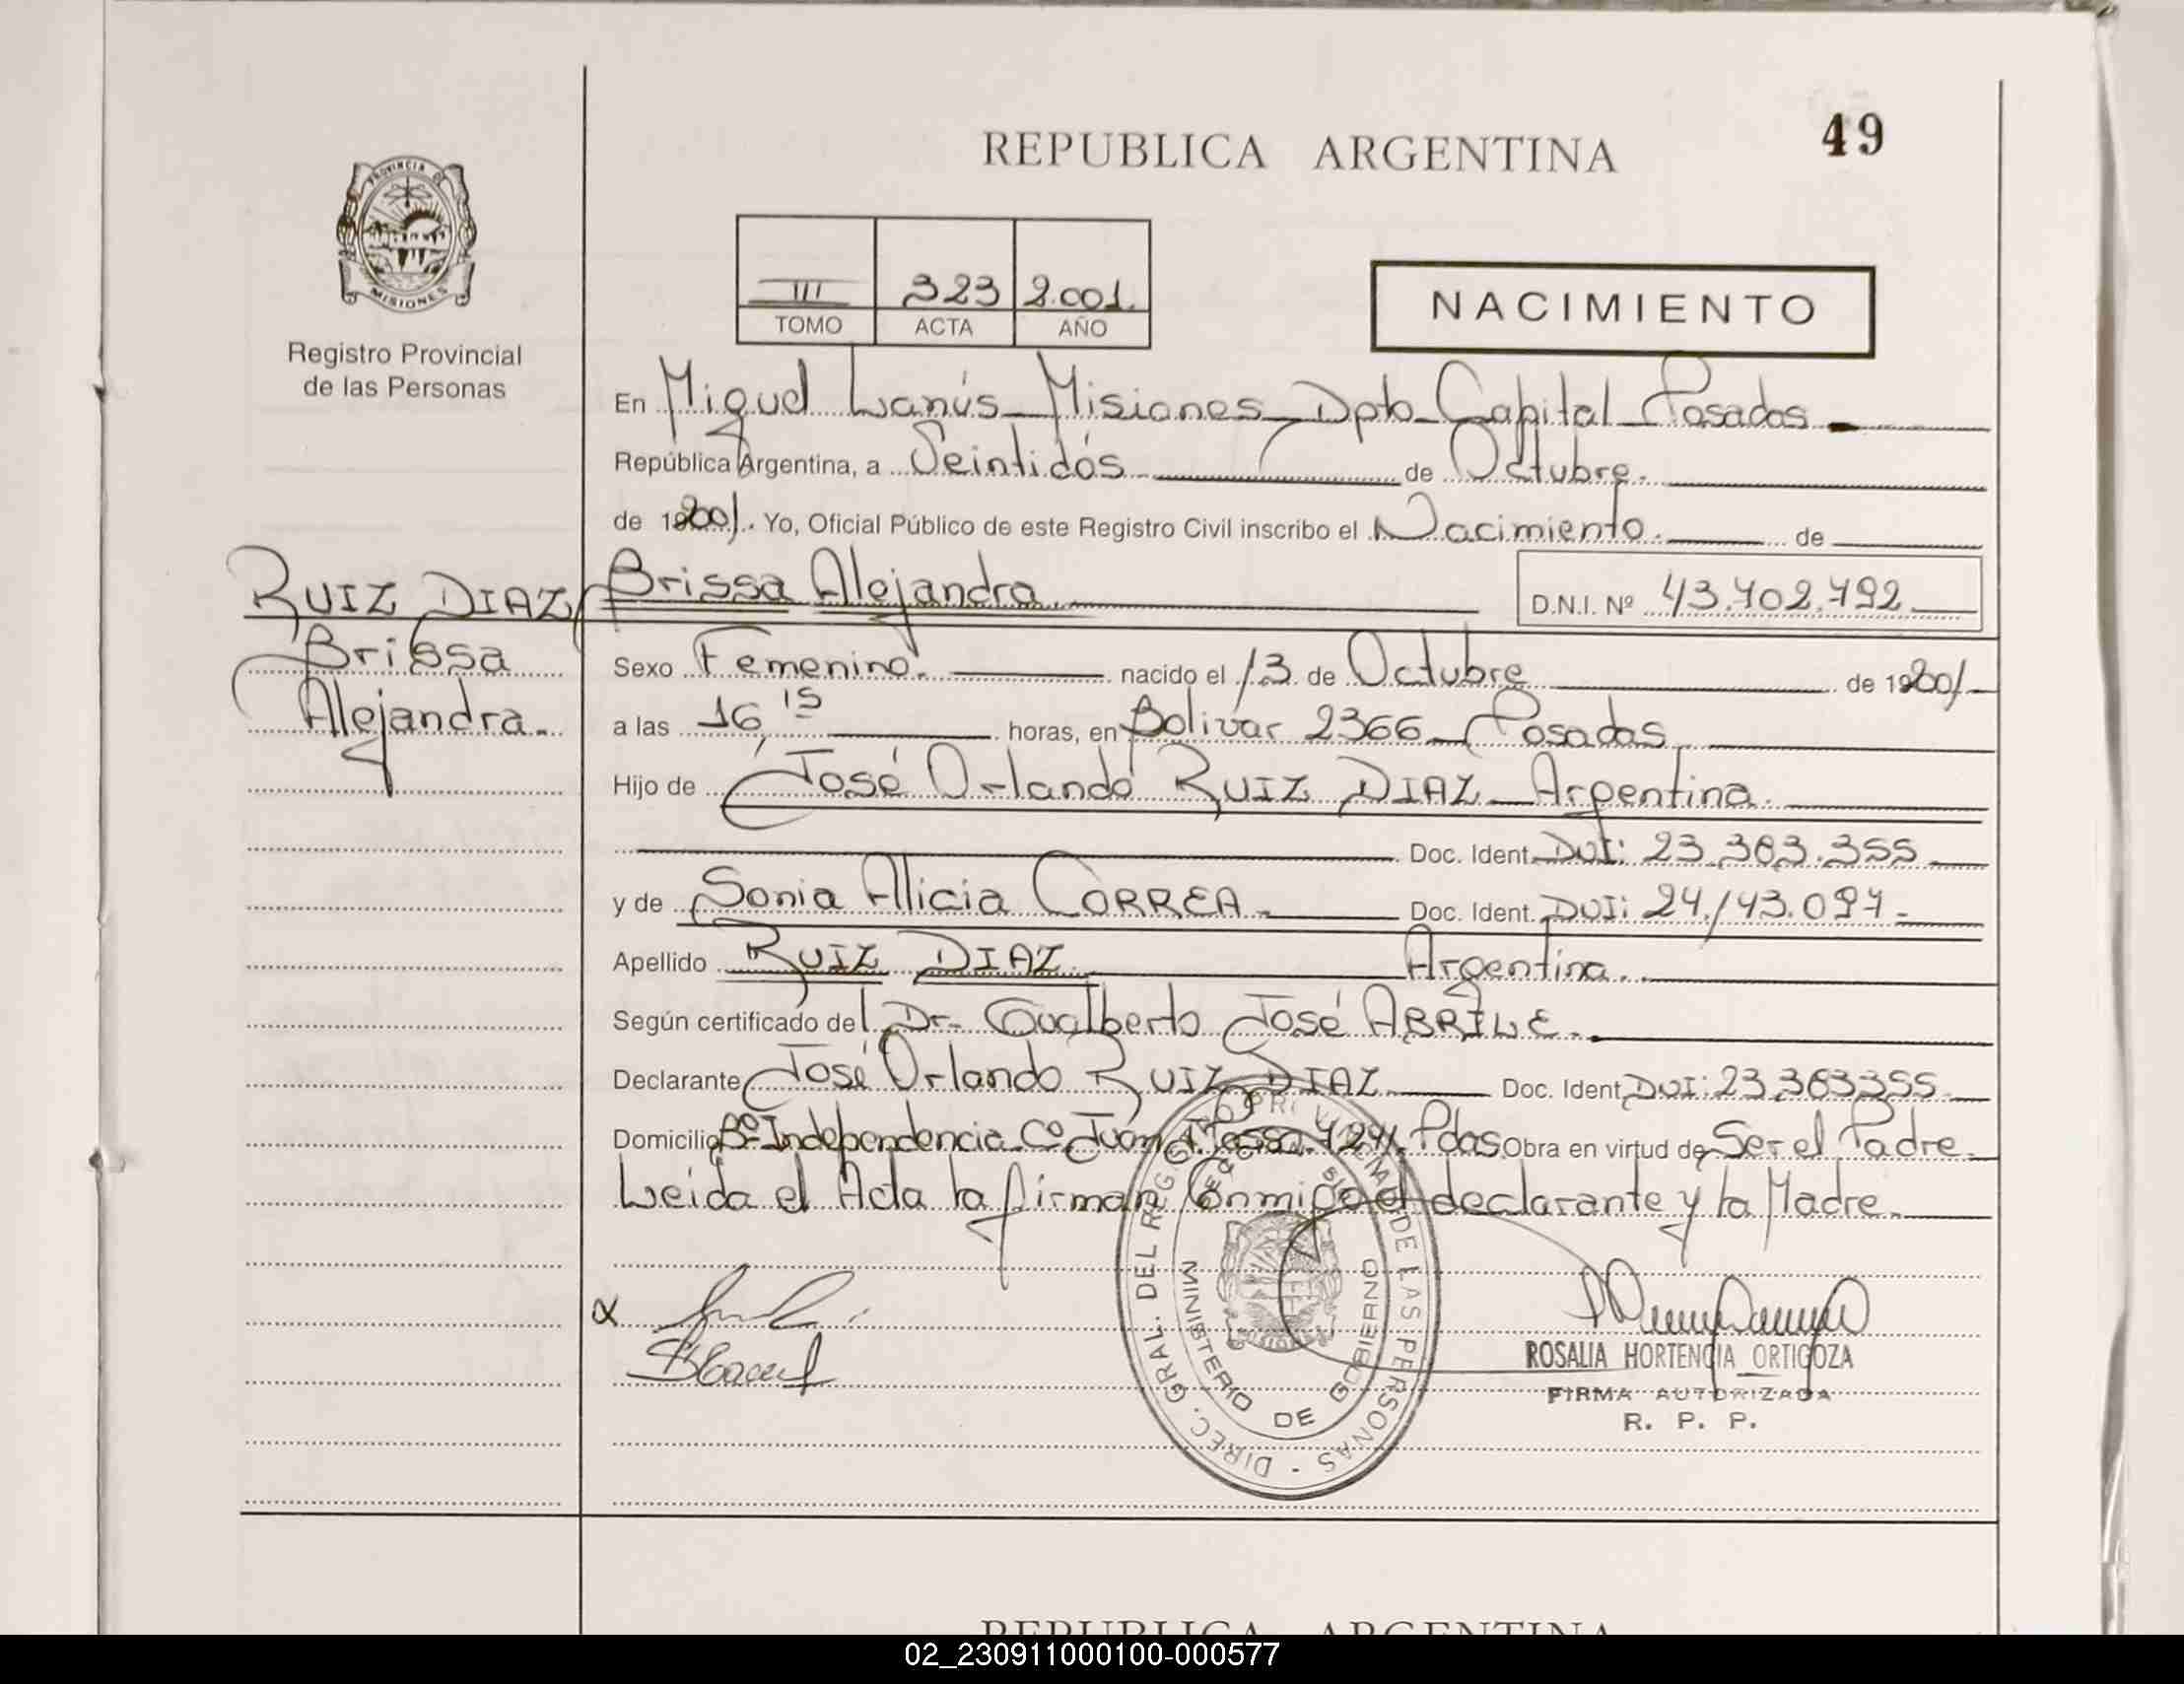 REPUBLICA ARGENTINA
49
PROVINCIA DE
MISIONES
Registro Provincial
de las Personas
III 323 2.001.
TOMO ACTA AÑO
NACIMIENTO
En Miguel Lanús - Misiones - Dpto - Capital - Posadas
República Argentina, a Veintidós de Octubre.
de 2001. Yo, Oficial Público de este Registro Civil inscribo el Nacimiento. de
RUIZ DIAZ, Brissa Alejandra.
D.N.I. Nº 43.702.792
Brissa
Alejandra.
Sexo Femenino. nacido el 13 de Octubre de 2001
a las 16,15 horas, en Bolívar 2366 - Posadas
Hijo de José Orlando RUIZ DIAZ - Argentina.
Doc. Ident. DUI: 23.363.355
y de Sonia Alicia CORREA - Doc. Ident. DUI: 24.143.097 -
Apellido RUIZ DIAZ. Argentina.
Según certificado del Dr. Gualberto José ABRILE.
Declarante José Orlando RUIZ DIAZ Doc. Ident. DUI: 23.363355
Domicilio Bº Independencia Cº Juan Pdas. Obra en virtud de Ser el Padre.
Leida el Acta la firman Conmigo el declarante y la Madre.
DIREC. GRAL. DEL REGISTRO PROVINCIAL DE LAS PERSONAS
MINISTERIO DE GOBIERNO
ROSALIA HORTENCIA ORTIGOZA
FIRMA AUTORIZADA
R. P. P.
REPUBLICA ARGENTINA
02_230911000100-000577